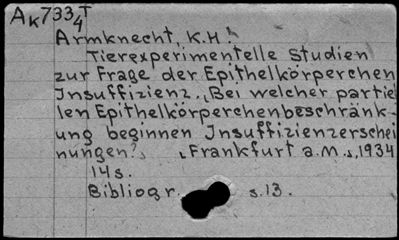 Ak 733 4 T
Armknecht, K.H.:
Tierexperimentelle Studien
zur Frage der Epithelkörperchen
Insuffizienz. „Bei welcher partiel
len Epithelkörperchenbeschränk-
ung beginnen Insuffizienzerschei
nungen?" Frankfurt a.M., 1934
14s.
Bibliogr. s.13.